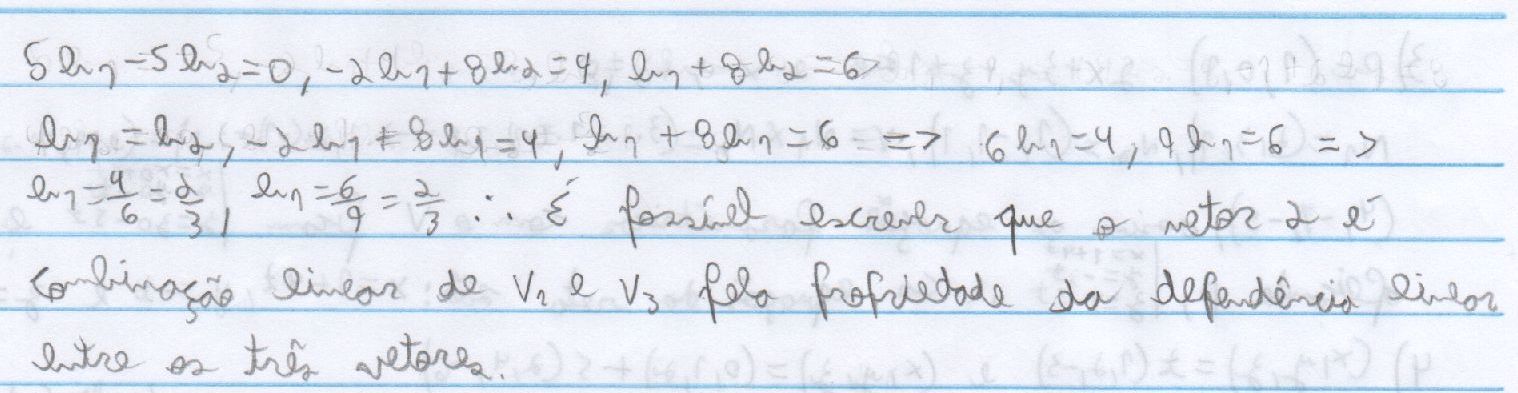 5k₁-5k₂=0, -2k₁+8k₂=4, k₁+8k₂=6
k₁=k₂, -2k₁+8k₁=4, k₁+8k₁=6 => 6k₁=4, 9k₁=6 =>
k₁=4/6=2/3, k₁=6/9=2/3 ∴ É possível escrever que o vetor 2 é
combinação linear de V₁ e V₃ pela propriedade da dependência linear
entre os três vetores.